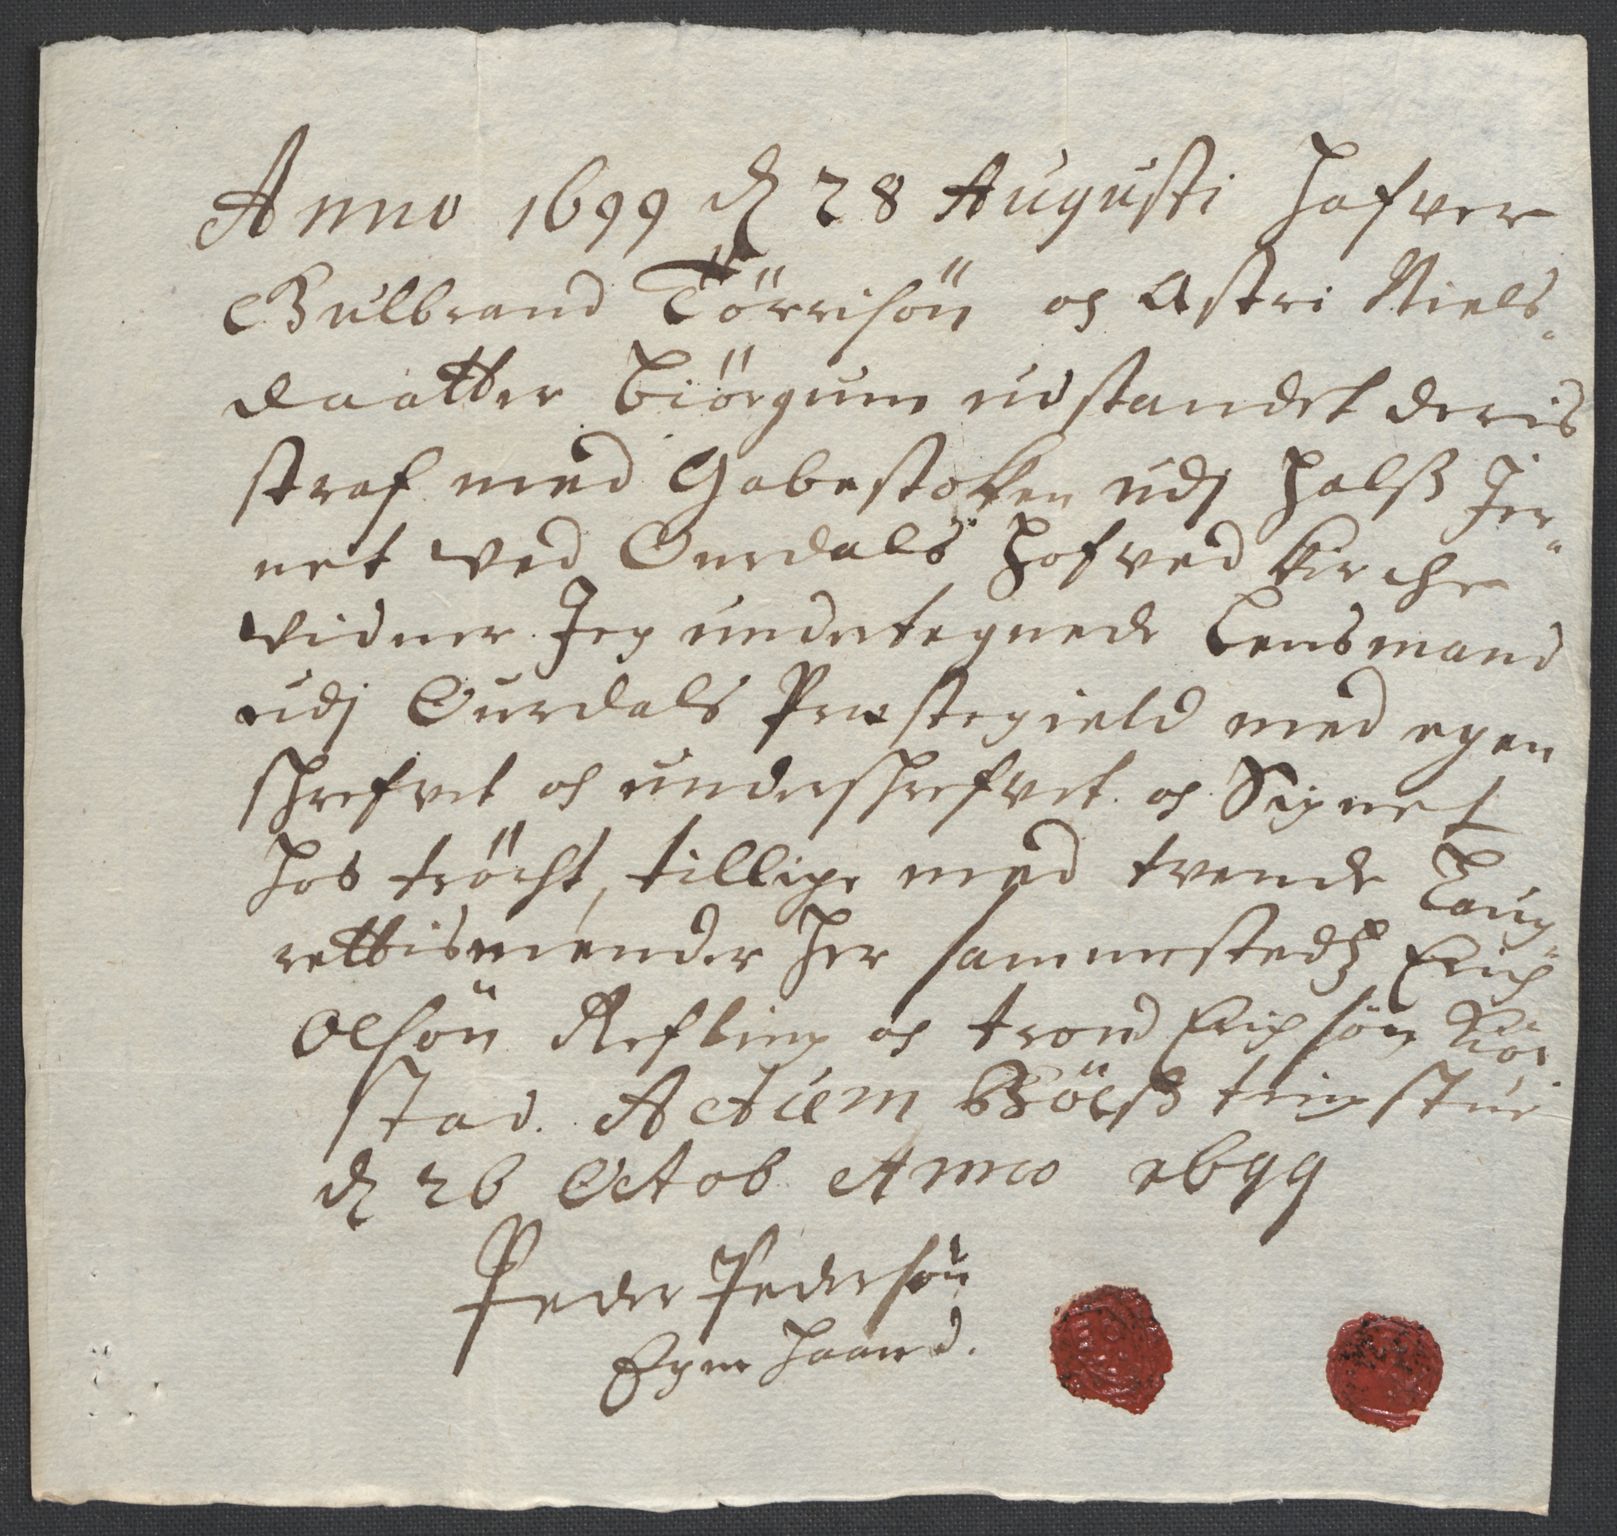 Anno 1699 d 28 Augusti hafver
Gulbrand Törrisön og Astri Niels-
daatter biörgum udstandet deris
straf med Gabestokken udj Halss Jer-
net ved Ourdals Hofved kirche
vidner Jeg undertegnede Lensmand
udj Ourdals Præstegield med egen
schrefvet og underschrefvet og Signet
hos tröcht, tillige med tvende Laug-
rettismender her sammestedz Erich
Olsön Refling og trond Erichsön
stad. Actum tingstue
d 26 Octob Anno 1699
Peder Pedersön
Egen haand.